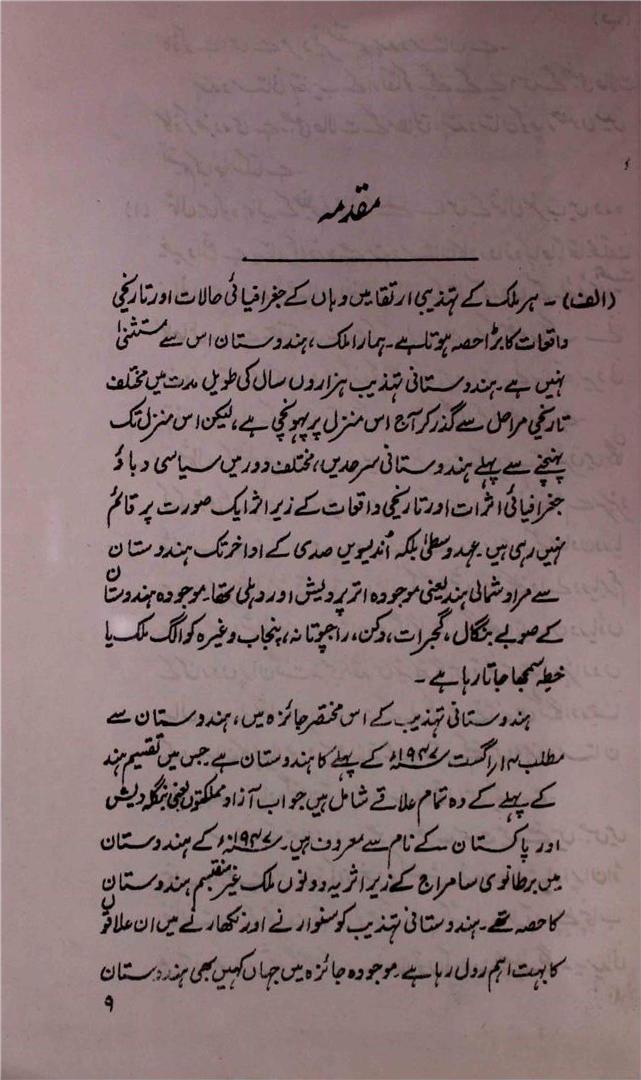 مقدمہ
(الف)۔ ہر ملک کے تہذیبی ارتقا میں وہاں کے جغرافیائی حالات اور تاریخی
واقعات کا بڑا حصہ ہوتا ہے۔ ہمارا ملک، ہندوستان اس سے مستثنیٰ
نہیں ہے۔ ہندوستانی تہذیب ہزاروں سال کی طویل مدت میں مختلف
تاریخی مراحل سے گذر کر آج اس منزل پر پہونچی ہے، لیکن اس منزل تک
پہنچنے سے پہلے ہندوستانی سرحدیں، مختلف دور میں سیاسی دباؤ
جغرافیائی اثرات اور تاریخی واقعات کے زیر اثر ایک صورت پر قائم
نہیں رہی ہیں۔ عہد وسطیٰ بلکہ اُنیسویں صدی کے اواخر تک ہندوستان
سے مراد شمالی ہند یعنی موجودہ اتر پردیش اور دہلی تھا۔ موجودہ ہندوستان
کے صوبے بنگال، گجرات، دکن، راجپوتانہ، پنجاب وغیرہ کو الگ ملک یا
خطہ سمجھا جاتا رہا ہے۔
ہندوستانی تہذیب کے اس مختصر جائزہ میں، ہندوستان سے
مطلب ۱۴ اگست ۱۹۴۷ء کے پہلے کا ہندوستان ہے جس میں تقسیم ہند
کے پہلے کے وہ تمام علاقے شامل ہیں جو اب آزاد مملکتوں یعنی بنگلہ دیش
اور پاکستان کے نام سے معروف ہیں۔ ۱۹۴۷ء کے ہندوستان
میں برطانوی سامراج کے زیر اثر یہ دونوں ملک غیر منقسم ہندوستان
کا حصہ تھے۔ ہندوستانی تہذیب کو سنوارنے اور نکھارنے میں ان علاقوں
کا بہت اہم رول رہا ہے۔ موجودہ جائزہ میں جہاں کہیں بھی ہندوستان
۹